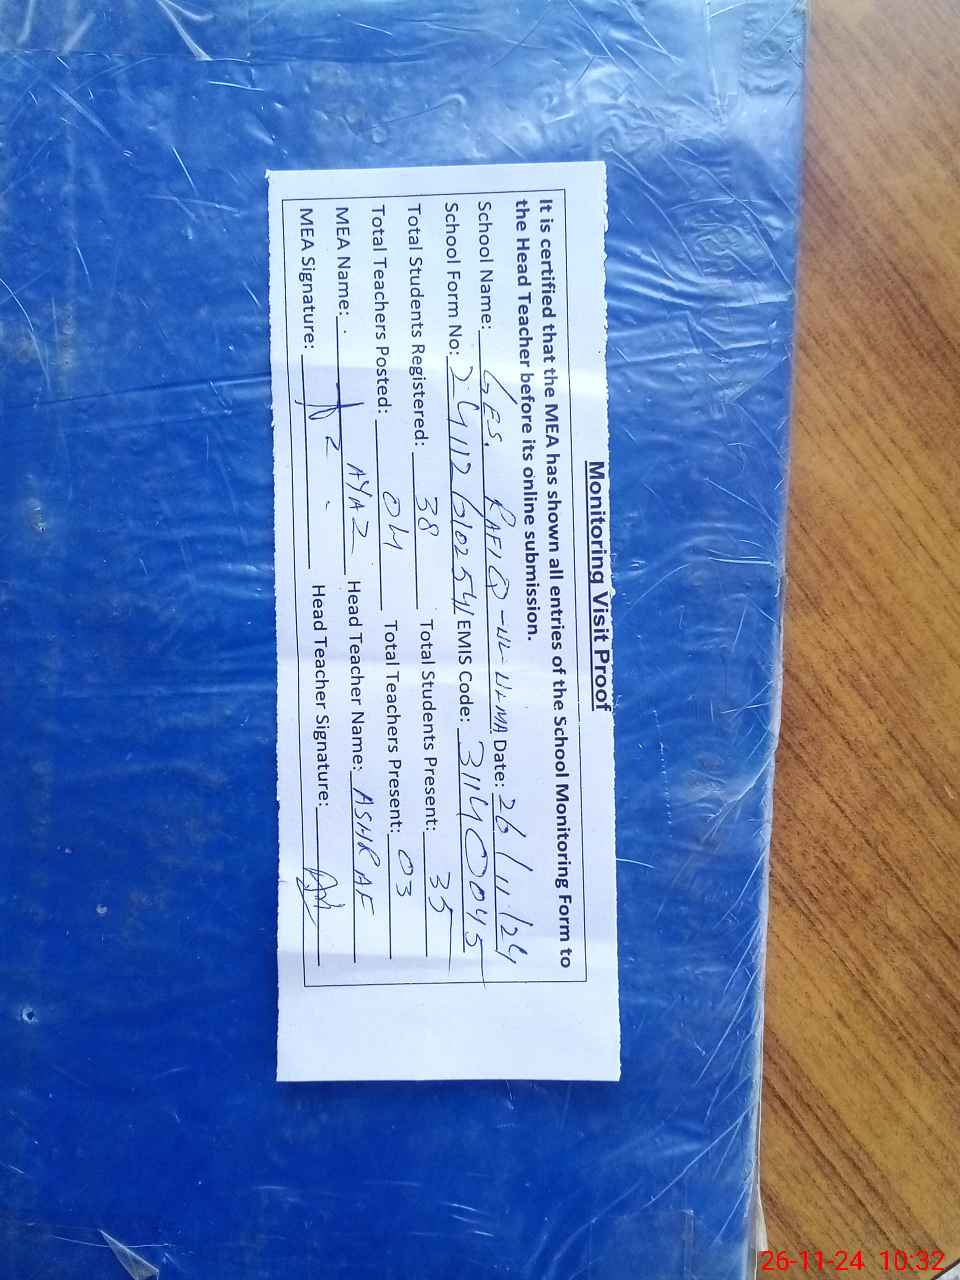 Monitoring Visit Proof
It is certified that the MEA has shown all entries of the School Monitoring Form to
the Head Teacher before its online submission.
School Name: GES. RAFIQ-UL-ULMA Date: 26/11/24
School Form No: EMIS Code: 31140045
Total Students Registered: 38 Total Students Present: 35
Total Teachers Posted: 04 Total Teachers Present: 03
MEA Name: AYAZ Head Teacher Name: ASHRAF
MEA Signature: Head Teacher Signature:
26-11-24 10:32